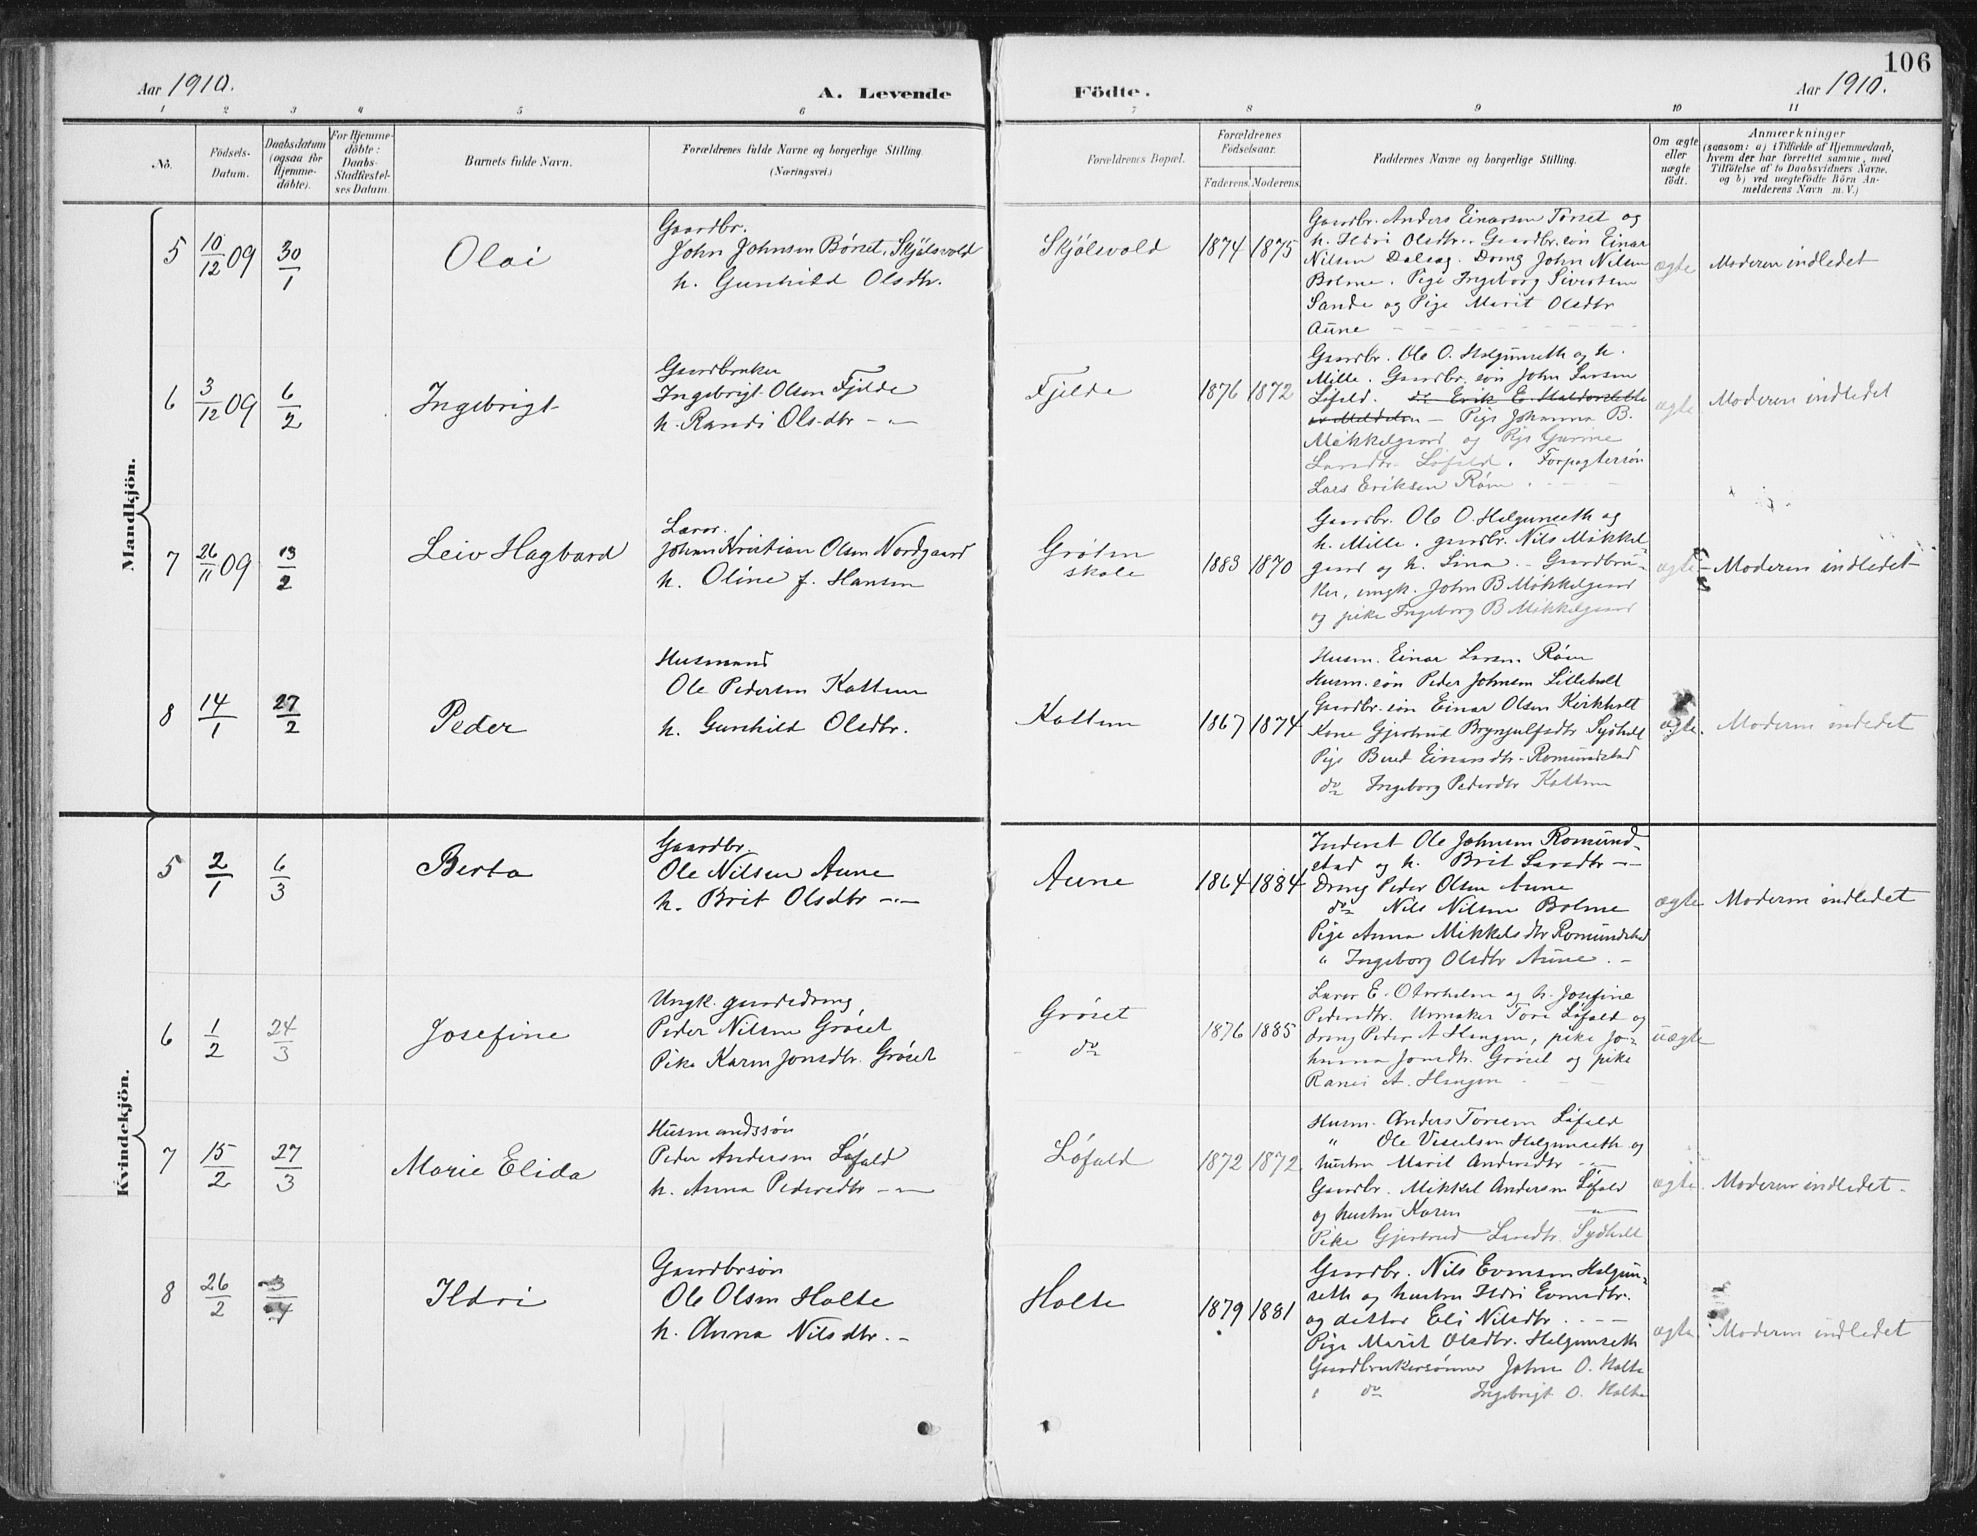 106
Aar 1910.
A. Levende
Födte.
Aar 1910.
1 2 3 4 5 6 7 8 9 10 11
No.
Födsels-
Datum.
Daabsdatum
(ogsaa for
Hjemme-
döbte).
For Hjemme-
döbte:
Daabs-
Stadfæstel-
ses Datum.
Barnets fulde Navn.
Forældrenes fulde Navne og borgerlige Stilling.
(Næringsvei.)
Forældrenes Bopæl.
Forældrenes
Födselsaar.
Faderens. Moderens.
Faddernes Navne og borgerlige Stilling.
Om ægte
eller
uægte
födt.
Anmærkninger
(saasom: a) i Tilfælde af Hjemmedaab,
hvem der har forrettet samme, med
Tilföielse af to Daabsvidners Navne,
og b) ved uægtefödte Börn An-
melderens Navn m. V.)
Mandkjön.
5 10/12 09 30/1 Olai
Gaardbr.
John Johnsen Börset, Skjölsvold
h. Gunhild Olsdtr.
Skjölsvold 1874 1875
Gaardbr. Anders Einarsen Torset og
h. Ildri Olsdtr. Gaardbr.sön Einar
Nilsen Dalsag. Dreng John Nilsen
Bolme. Pige Ingeborg Sivertsen
Sande og Pige Marit Olsdtr
Aune
ægte Moderen indledet
6 3/12 09 6/2 Ingebrigt
Gaardbruker
Ingebrigt Olsen Fjelde
h. Randi Olsdtr -"-
Fjelde 1876 1872
Gaardbr. Ole O. Helgunseth og h.
Mille. Gaardbr. sön John Larsen
Löfald. do Erik E.
Pige Johanna B.
Mikkelgaard og Pige Gurine
Larsdtr Löfald. Forpagtersön
Lars Eriksen Röen.
ægte Moderen indledet
7 26/11 09 13/2 Leiv Hagbard
Lærer.
Johan Kristian Olsen Nordgaard
h. Oline f. Hansen
Gröten
skole 1883 1870
Gaardbr. Ole O. Helgunseth og
h. Mille. gaardbr. Nils Mikkel-
gaard og h. Lina. - Gaardbru-
ker, ungk. John B Mikkelgaard
og pike Ingeborg B Mikkelgaard
ægte - Moderen indledet
8 14/1 27/2 Peder
Husmand
Ole Pedersen Kattum
h. Gunhild Olsdtr.
Kattum 1867 1874
Husm. Einar Larsen Röen
Husm.sön Peder Johnsen Lilleholt
Gaardbr.sön Einar Olsen Kirkholt
Kone Gjertrud Brynjulfsdtr Sydholt
Pige Beret Einarsdtr Romundstad
do Ingeborg Pedersdtr Kattum
ægte. Moderen indledet
Kvindekjön.
5 2/1 6/3 Berta
Gaardbr.
Ole Nilsen Aune
h. Brit Olsdtr -"-
Aune 1864 1884
Inderst Ole Johnsen Romund-
stad og h. Brit Larsdtr -"-
Dreng Peder Olsen Aune
do Nils Nilsen Bolme
Pige Anna Mikkelsdtr Romundstad
" Ingeborg Olsdtr Aune. -
ægte Moderen indledet
6 1/2 24/3 Josefine
Ungk. gaardsdreng
Peder Nilsen Gröset
Pike Karen Jonsdtr. Gröset
Gröset
do 1876 1885
Lærer E. Oterholm og h. Josefine
Pedersdtr. Urmaker Tore Löfald og
dreng Peder A Haugen, pike Jo-
hanna Jonsdtr. Gröset og pike
Randi A. Haugen
uægte
7 15/2 27/3 Marie Elida
Husmandssön
Peder Andersen Löfald
h. Anna Pedersdtr -"-
Löfald 1872 1872
Husm. Anders Toresen Löfald
" Ole Hesselsen Helgunseth og
hustru Marit Andersdtr -"-
Gaardbr. Mikkel Andersen Löfald
og hustru Karen -"-
Pike Gjertrud Larsdtr. Sydholt
ægte. Moderen indledet -
8 26/2 3/4 Ildri
Gaardbrsön
Ole Olsen Holte
h. Anna Nilsdtr. -
Holte 1879 1881
Gaardbr. Nils Evensen Helgun-
seth og hustru Ildri Evensdtr.
og datter Eli Nilsdtr.
Pige Marit Olsdtr. Helgunseth
Gaardbrukersönner John O. Holte
" do Ingebrigt O. Holte
ægte. Moderen indledet